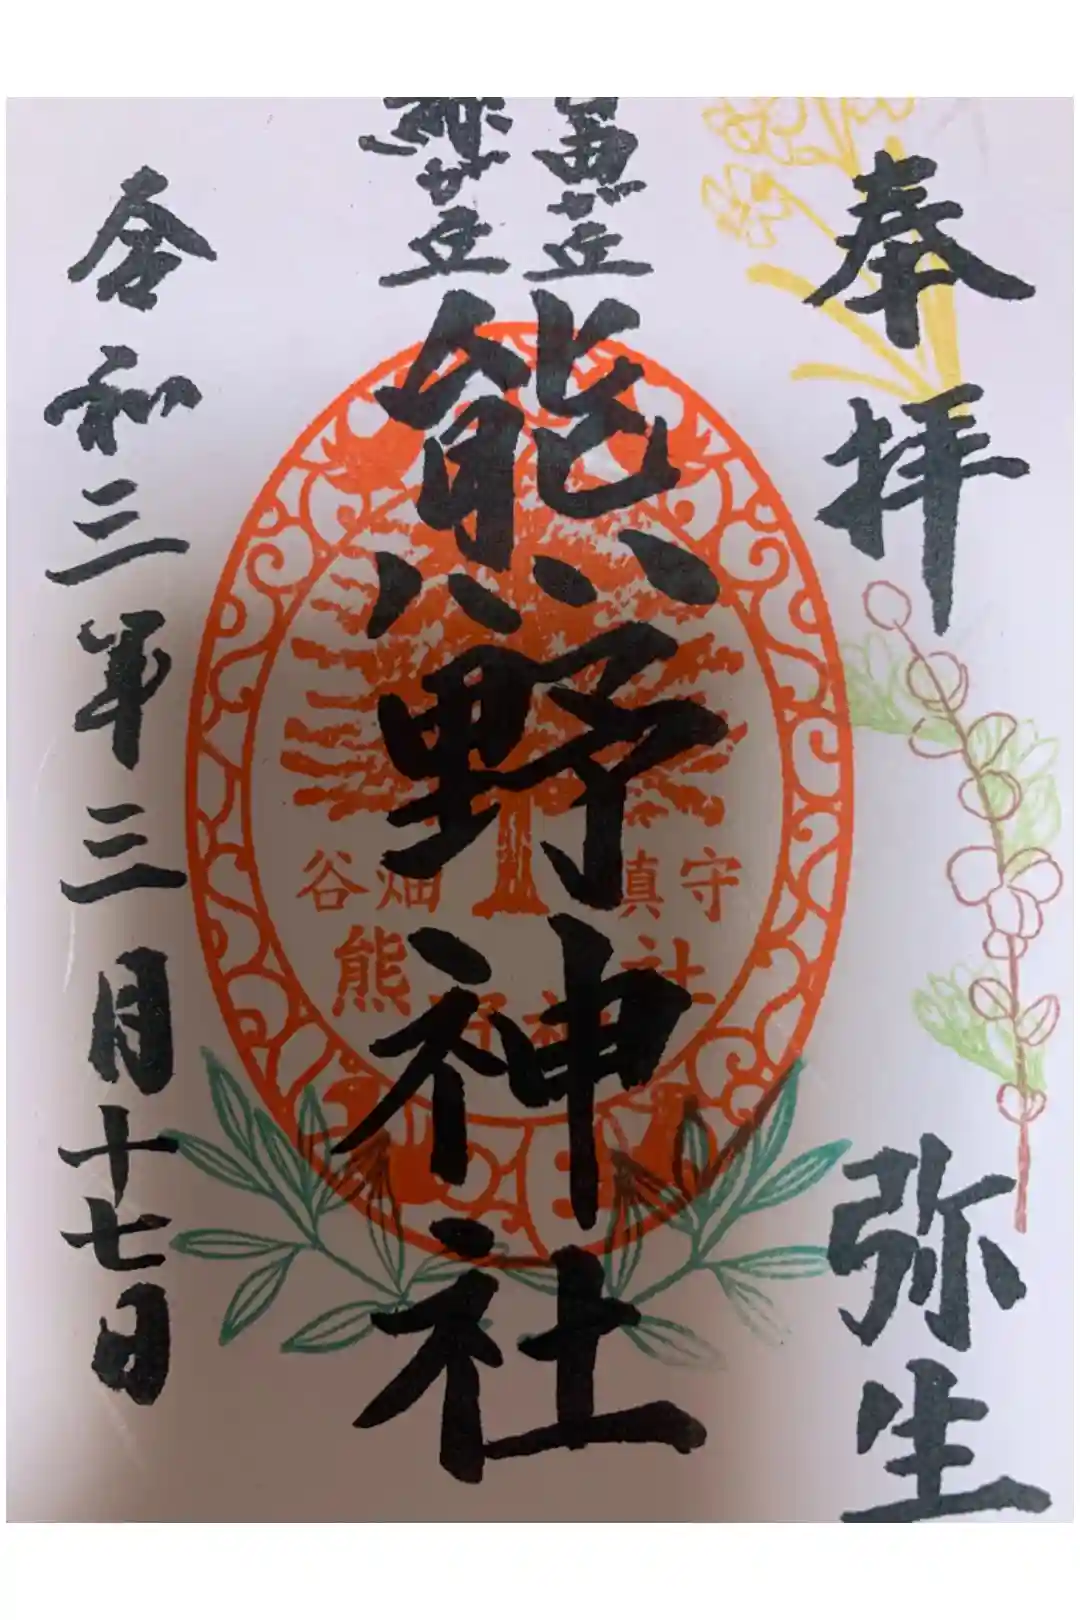 奉拝
弥生
熊野神社
谷畑 鎮守
熊野神社
令和三年三月十七日